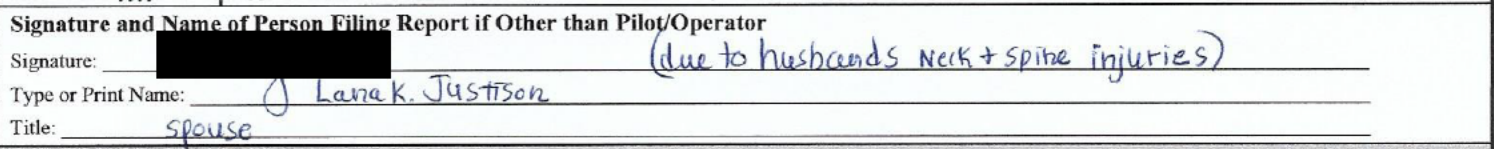 Signature and Name of Person Filing Report if Other than Pilot/Operator
Signature: (due to husbands Neck + spine injuries)
Type or Print Name: Lana K. Justison
Title: spouse